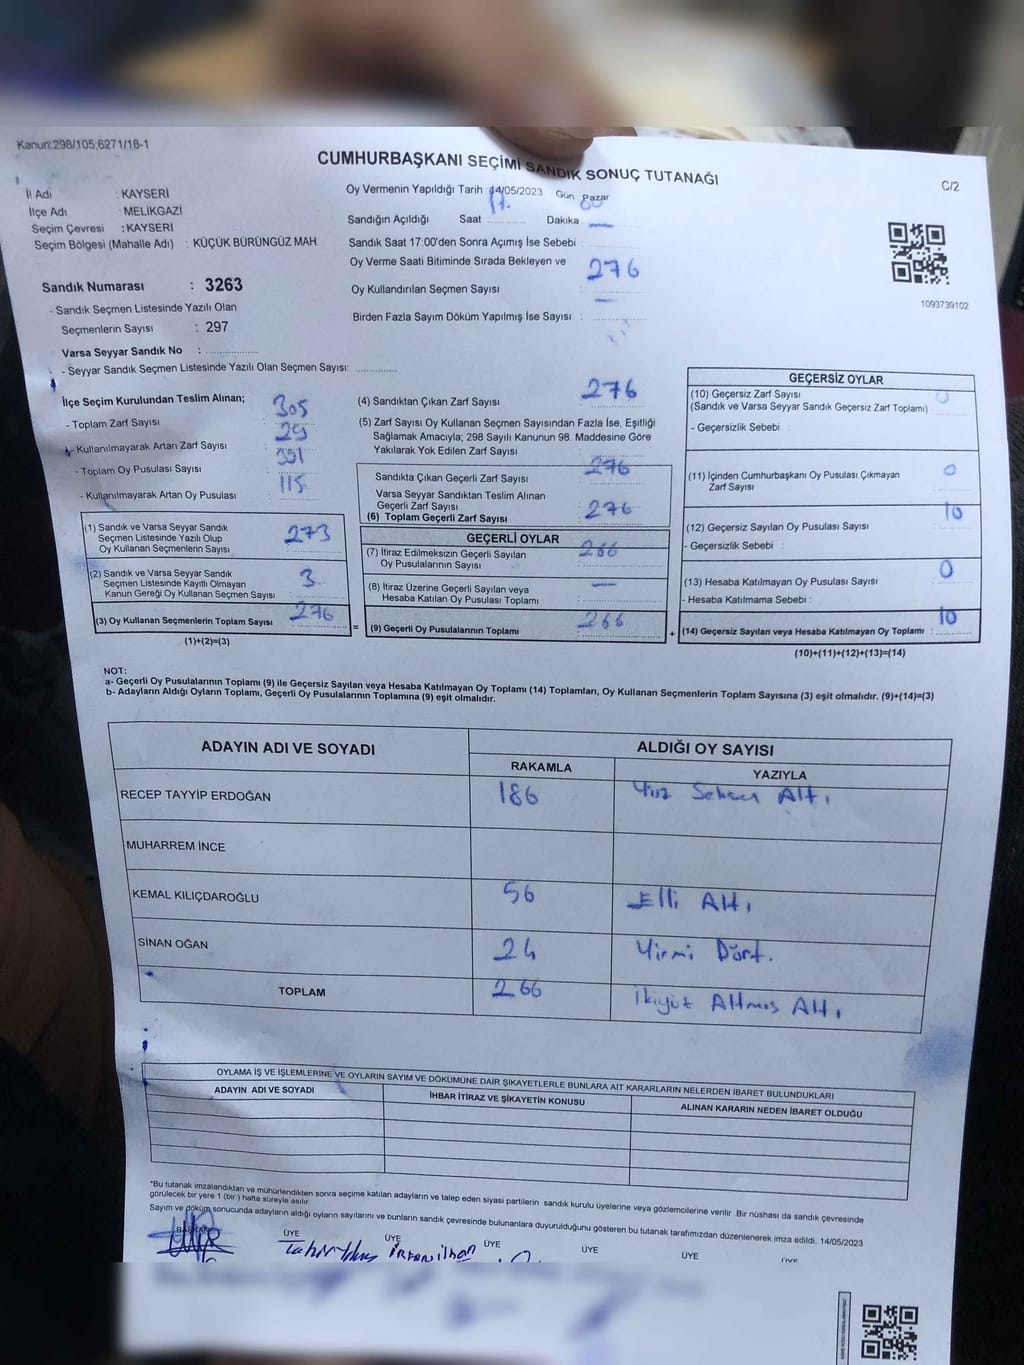 Kanun:298/105;6271/18-1
CUMHURBAŞKANI SEÇİMİ SANDIK SONUÇ TUTANAĞI
C/2
İl Adı : KAYSERİ
İlçe Adı : MELİKGAZİ
Seçim Çevresi : KAYSERİ
Seçim Bölgesi (Mahalle Adı) : KÜÇÜK BÜRÜNGÜZ MAH.
Sandık Numarası : 3263
- Sandık Seçmen Listesinde Yazılı Olan
Seçmenlerin Sayısı : 297
Varsa Seyyar Sandık No : ................
- Seyyar Sandık Seçmen Listesinde Yazılı Olan Seçmen Sayısı: .............
Oy Vermenin Yapıldığı Tarih : 14/05/2023 Gün Pazar
Sandığın Açıldığı Saat 17. Dakika 00
Sandık Saat 17:00'den Sonra Açımış İse Sebebi :
Oy Verme Saati Bitiminde Sırada Bekleyen ve
Oy Kullandırılan Seçmen Sayısı : 276
Birden Fazla Sayım Döküm Yapılmış İse Sayısı : —
1093739102
İlçe Seçim Kurulundan Teslim Alınan;
- Toplam Zarf Sayısı : 305
- Kullanılmayarak Artan Zarf Sayısı : 29
- Toplam Oy Pusulası Sayısı : 391
- Kullanılmayarak Artan Oy Pusulası : 115
(1) Sandık ve Varsa Seyyar Sandık
Seçmen Listesinde Yazılı Olup
Oy Kullanan Seçmenlerin Sayısı : 273
(2) Sandık ve Varsa Seyyar Sandık
Seçmen Listesinde Kayıtlı Olmayan
Kanun Gereği Oy Kullanan Seçmen Sayısı : 3
(3) Oy Kullanan Seçmenlerin Toplam Sayısı : 276
(1)+(2)=(3)
(4) Sandıktan Çıkan Zarf Sayısı : 276
(5) Zarf Sayısı Oy Kullanan Seçmen Sayısından Fazla İse, Eşitliği
Sağlamak Amacıyla; 298 Sayılı Kanunun 98. Maddesine Göre
Yakılarak Yok Edilen Zarf Sayısı :
Sandıkta Çıkan Geçerli Zarf Sayısı : 276
Varsa Seyyar Sandıktan Teslim Alınan
Geçerli Zarf Sayısı :
(6) Toplam Geçerli Zarf Sayısı : 276
GEÇERLİ OYLAR
(7) İtiraz Edilmeksizin Geçerli Sayılan
Oy Pusulalarının Sayısı : 266
(8) İtiraz Üzerine Geçerli Sayılan veya
Hesaba Katılan Oy Pusulası Toplamı : —
(9) Geçerli Oy Pusulalarının Toplamı : 266
GEÇERSİZ OYLAR
(10) Geçersiz Zarf Sayısı : 0
(Sandık ve Varsa Seyyar Sandık Geçersiz Zarf Toplamı)
- Geçersizlik Sebebi :
(11) İçinden Cumhurbaşkanı Oy Pusulası Çıkmayan
Zarf Sayısı : 0
(12) Geçersiz Sayılan Oy Pusulası Sayısı : 10
- Geçersizlik Sebebi :
(13) Hesaba Katılmayan Oy Pusulası Sayısı : 0
- Hesaba Katılmama Sebebi :
(14) Geçersiz Sayılan veya Hesaba Katılmayan Oy Toplamı : 10
(10)+(11)+(12)+(13)=(14)
NOT:
a- Geçerli Oy Pusulalarının Toplamı (9) ile Geçersiz Sayılan veya Hesaba Katılmayan Oy Toplamı (14) Toplamları, Oy Kullanan Seçmenlerin Toplam Sayısına (3) eşit olmalıdır. (9)+(14)=(3)
b- Adayların Aldığı Oyların Toplamı, Geçerli Oy Pusulalarının Toplamına (9) eşit olmalıdır.
ADAYIN ADI VE SOYADI ALDIĞI OY SAYISI
RAKAMLA YAZIYLA
RECEP TAYYİP ERDOĞAN 186 Yüz Seksen Altı
MUHARREM İNCE
KEMAL KILIÇDAROĞLU 56 Elli Altı
SİNAN OĞAN 24 Yirmi Dört.
TOPLAM 266 ikiyüz Altmış Altı
OYLAMA İŞ VE İŞLEMLERİNE VE OYLARIN SAYIM VE DÖKÜMÜNE DAİR ŞİKAYETLERLE BUNLARA AİT KARARLARIN NELERDEN İBARET BULUNDUKLARI
ADAYIN ADI VE SOYADI İHBAR İTİRAZ VE ŞİKAYETİN KONUSU ALINAN KARARIN NEDEN İBARET OLDUĞU
*Bu tutanak imzalandıktan ve mühürlendikten sonra seçime katılan adayların ve talep eden siyasi partilerin sandık kurulu üyelerine veya gözlemcilerine verilir. Bir nüshası da sandık çevresinde
görülecek bir yere 1 (bir ) hafta süreyle asılır.
Sayım ve döküm sonucunda adayların aldığı oyların sayılarını ve bunların sandık çevresinde bulunanlara duyurulduğunu gösteren bu tutanak tarafımızdan düzenlenerek imza edildi. 14/05/2023
BAŞKAN ÜYE ÜYE ÜYE ÜYE ÜYE ÜYE